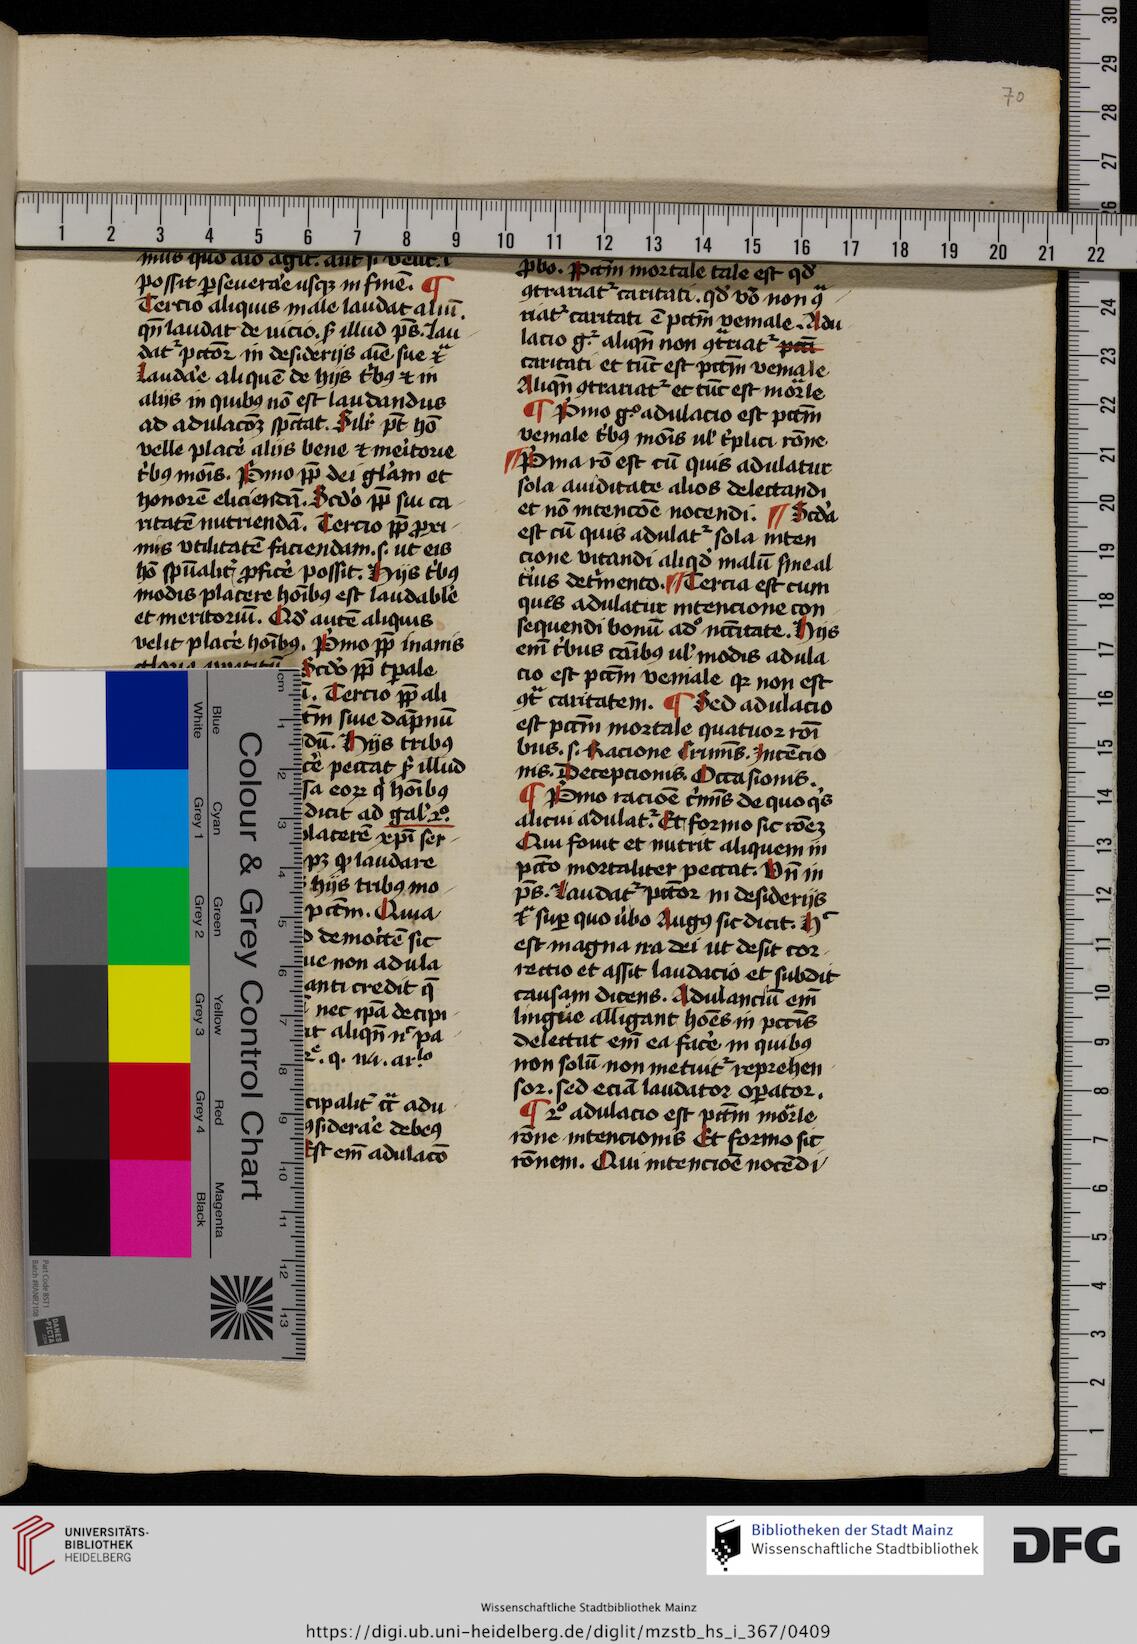 70
possit ꝑseuerare usqꝫ in finē. ¶
Tercio aliquis male laudat aliū.
qn̄ laudat de uicio. ẜ illud p̄s. Lau
datᷣ pctōr in desiderijs aīe sue ⁊c̄
Laudare aliquē de hijs tͥbꝰ ⁊ in
alijs in quibꝰ nō est laudandus
ad adulacōꝫ spectat. Silr pt hō
velle placē alijs bene ⁊ meritorie
tͥbꝰ mōis. Pͥmo pp̄ dei glām et
honorē eliciendā. Scdo pp̄ sui ca
ritatē nutriendā. Tercio pp̄ ꝓxi
mis vtilitatē faciendam. s. ut eis
hō spūalitͬ ꝓficē possit. Hijs tͥbꝰ
modis placere hoībꝰ est laudable
et meritoriū. Qd autē aliquis
velit placē hoībꝰ. Pͥmo pp̄ inanis
Scdo pp̄ tp̄ale
Tercio pp̄ ali
tm̄ siue dāpnū
dū. Hijs tribꝰ
cē peccat ẜ illud
sa eoꝝ qͥ hoībꝰ
dicit ad gal. 2º.
placerē xp̄i ser
pꝫ ꝙ laudare
hijs tribꝰ mo
pctm̄. Quia
demoītē sic
ue non adula
anti credit q̄
nec ipā decipi
it aliqn̄ nͨ pa
cipalitͬ c̄c̄ adu
ꝯsiderare debeꝰ
Est em̄ adulacō
ꝓbo. Pctm̄ mortale tale est qd
ꝯtrariatᷣ caritati. qd vo non ꝯͣ
riatᷣ caritati ē pctm̄ veniale. Adu
lacio gͦ aliqn̄ non ꝯtͣriatᷣ pctī
caritati et tūc est pctm̄ veniale
Aliqn̄ ꝯtrariatᷣ et tūc est mōrle
¶ Pͥmo gͦ adulacio est pctm̄
veniale tͥbꝰ mōis ul tͥplici rōne
¶ Pͥma rō est cū quis adulatur
sola auiditate alios delectandi
et nō intencōe nocendi. ¶ Scda
est cū quis adulatᷣ sola inten
cione vitandi aliqd malū sine al
tͥius detͥmento. ¶ Tercia est cum
quis adulatur intencione con
sequendi bonū ad nc̄citate. Hijs
em̄ tͥbus caūibꝰ ul modis adula
cio est pctm̄ veniale qꝛ non est
ꝯtͣ caritatem. ¶ Sed adulacio
est pctm̄ mortale quatuor rōi
bus. s. Racione Crimīs. Intēcio
nis. Decepcionis. Occasionis.
¶ Pͥmo racioē cͥmīs de quo qͥs
alicui adulatᷣ. Et formo sic rōeꝫ
Qui fouit et nutrit aliquem in
pctō mortaliter peccat. Vn̄ in
p̄s. Laudatᷣ pctōr in desiderijs
⁊c̄ suꝑ quo ubo Augꝰ sic dicit. Hͨ
est magna ira dei ut desit cor
rectio et assit laudacio et subdit
causam dicens. Adulanciū em̄
lingue alligant hoēs in pctis
delectat em̄ ea facē in quibꝰ
non solū non metuitᷣ reprehen
sor. sed eciā laudator oꝑator.
¶ 2º adulacio est pctm̄ mōrle
rōne intencionis Et formo sic
rōnem. Qui intencioē nocēdi
Colour & Grey Control Chart
Blue
Cyan
Green
Yellow
Red
Magenta
White
Grey 1
Grey 2
Grey 3
Grey 4
Black
DANES
-PICTA
UNIVERSITÄTS-
BIBLIOTHEK
HEIDELBERG
Bibliotheken der Stadt Mainz
Wissenschaftliche Stadtbibliothek
DFG
Wissenschaftliche Stadtbibliothek Mainz
https://digi.ub.uni-heidelberg.de/diglit/mzstb_hs_i_367/0409